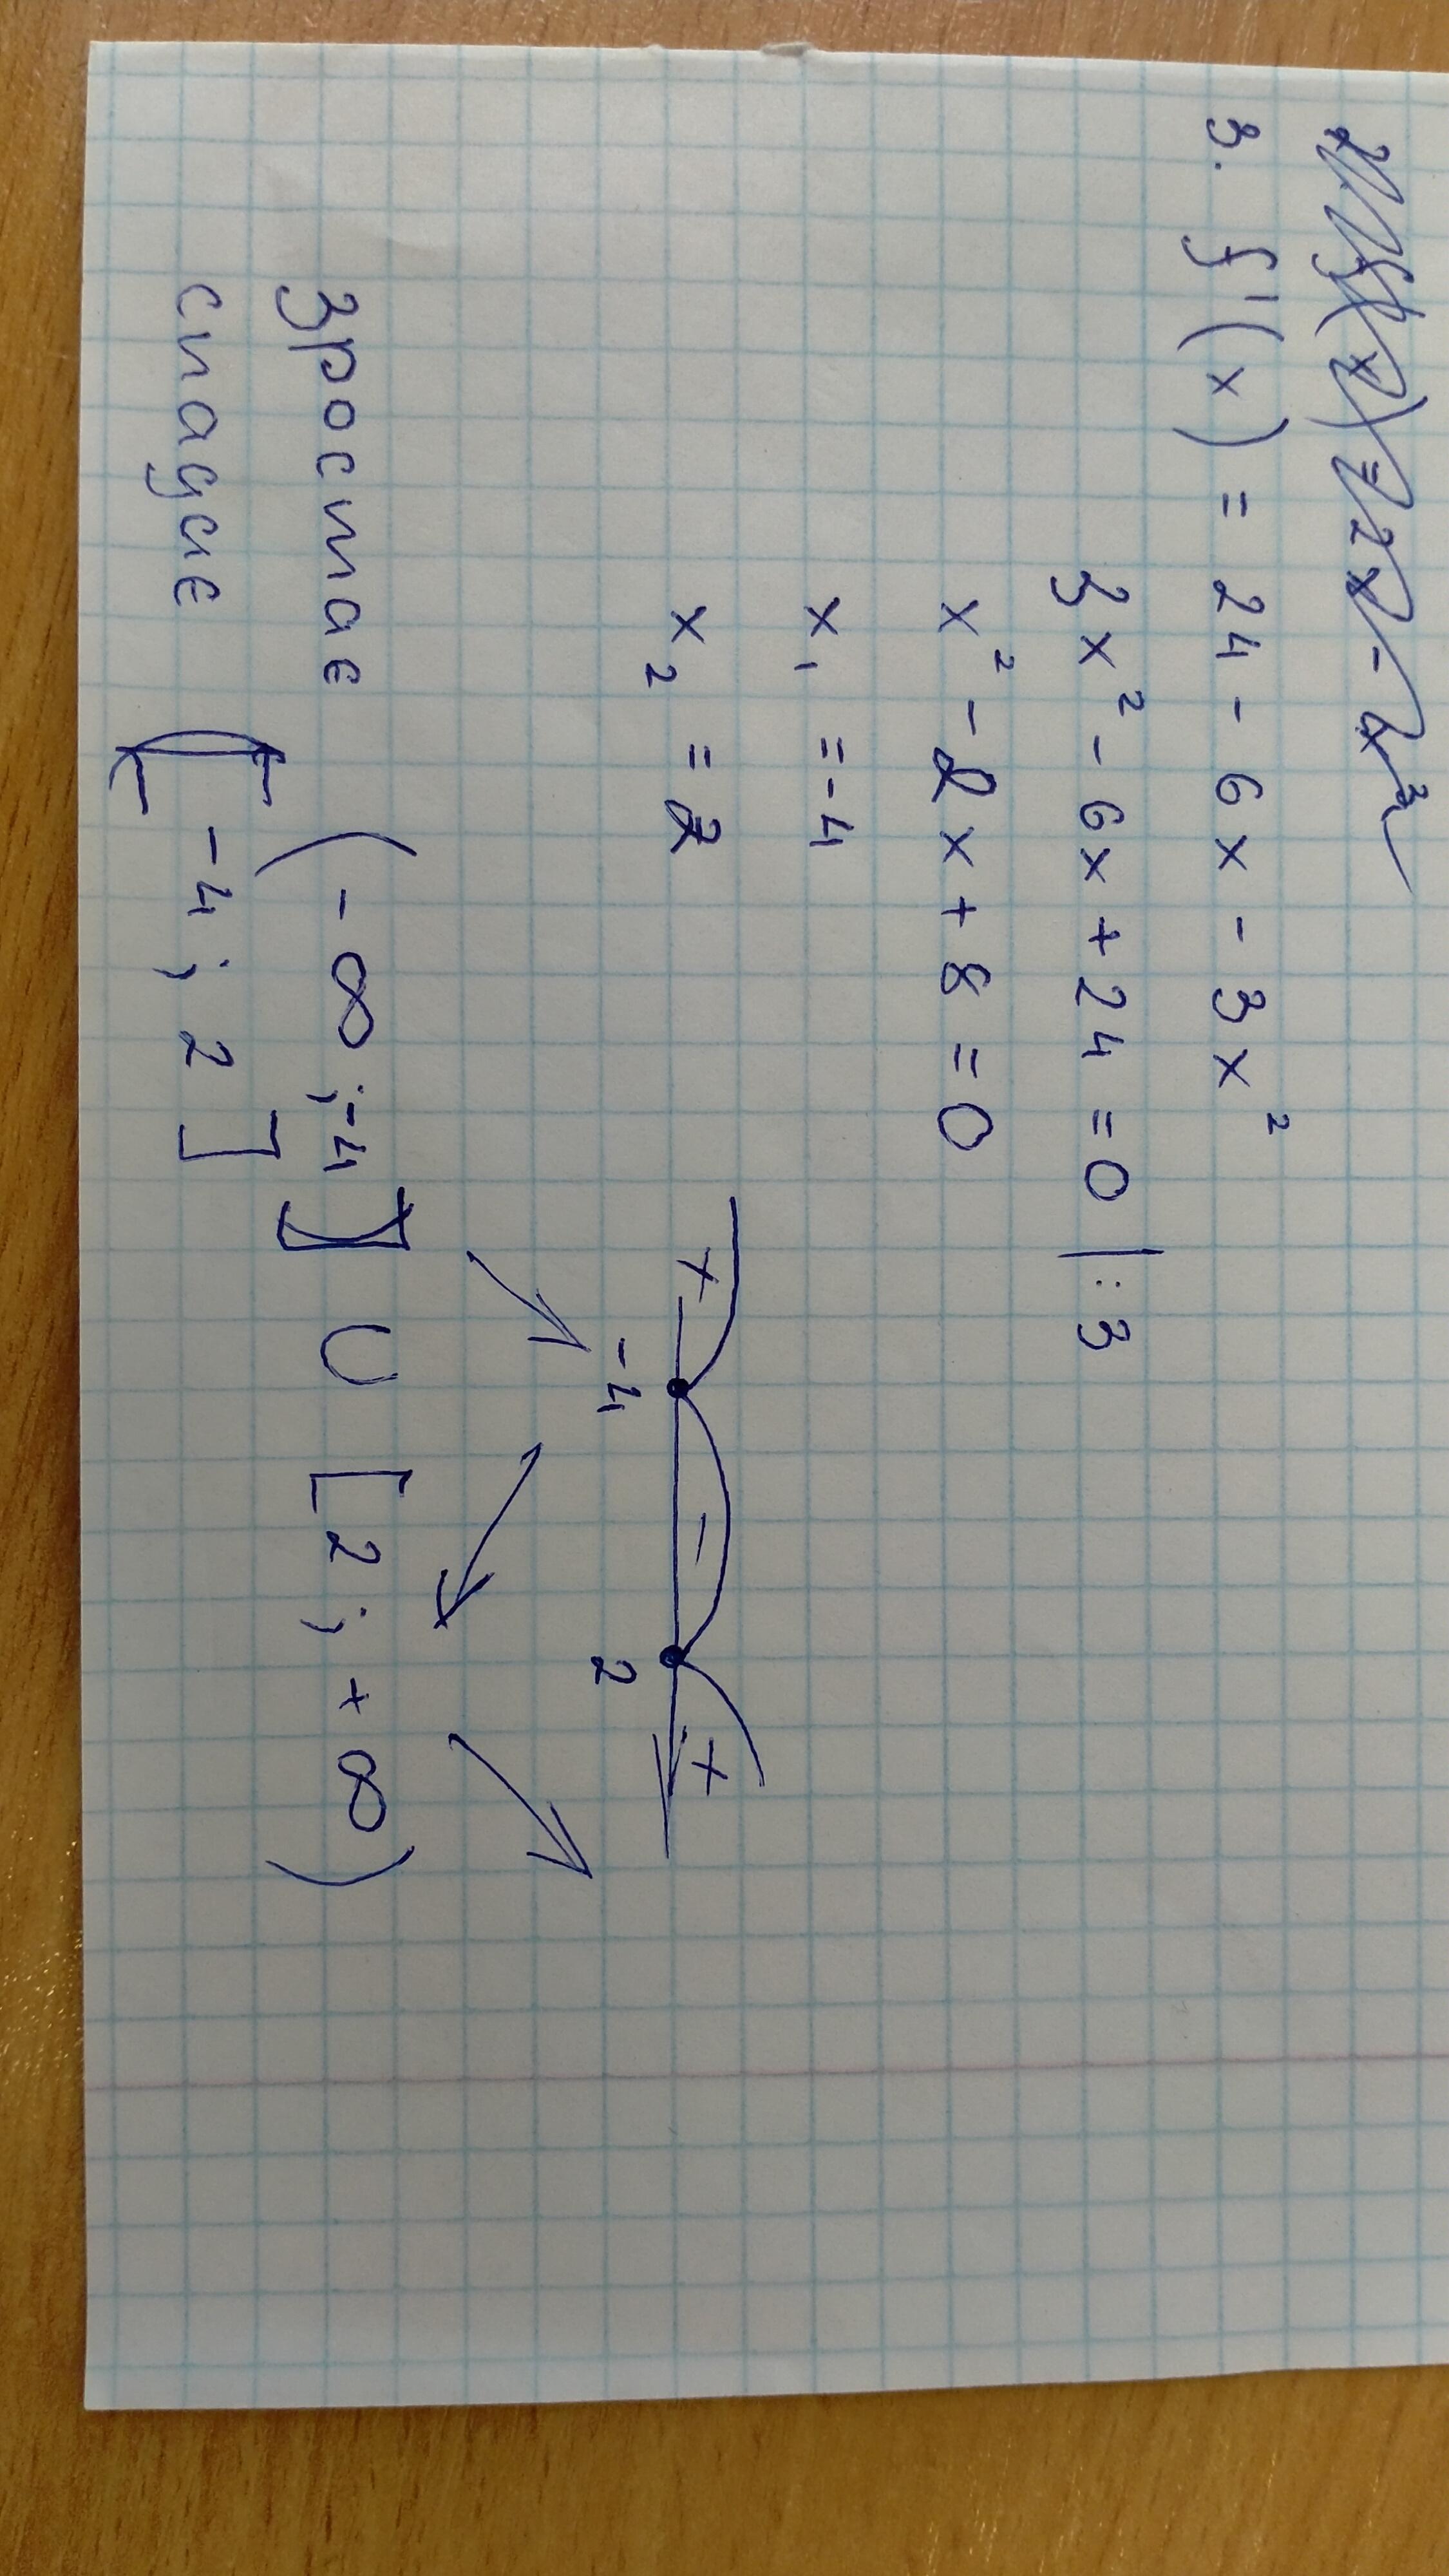 3. f'(x) = 24 - 6x - 3x²
3x² - 6x + 24 = 0 | : 3
x² - 2x + 8 = 0
x₁ = -4
x₂ = 2
+ - +
-4 2
зростає (-∞; -4] ∪ [2; +∞)
спадає [-4; 2]